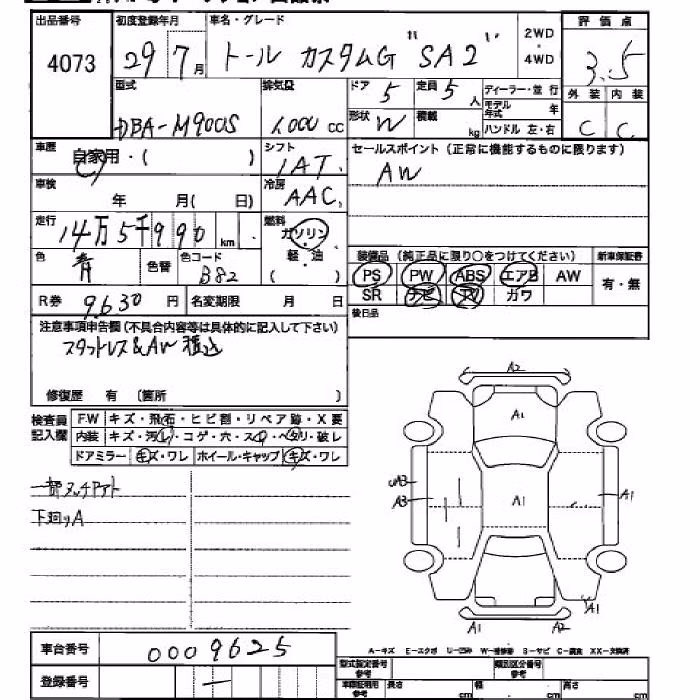 出品番号 初度登録年月 車名・グレード 2WD・4WD 評価点
4073 29 7月 トール カスタムG "SA2" 3.5
型式 排気量 ドア 5 定員 5人 ディーラー・並行 外装 内装
DBA-M900S 1,000cc 形状 W 積載 kg モデル年式 年 C C
ハンドル 左・右
車歴 自家用・( ) シフト 1AT セールスポイント(正常に機能するものに限ります)
車検 年 月( 日) 冷房 AAC AW
走行 14万5千990km 燃料 ガソリン・軽・油 ( )
色 青 色替 色コード B82
装備品(純正品に限り○をつけてください) 新車保証書
PS PW ABS エアB AW 有・無
SR ナビ TV ガワ
R券 9,630円 名変期限 月 日 後日品
注意事項申告欄(不具合内容等は具体的に記入して下さい)
スタットレス&AW積込
修復歴 有 (箇所 )
検査員記入欄 FW キズ・飛石・ヒビ割・リペア跡・X要
内装 キズ・汚レ・コゲ・穴・スレ・ベタリ・破レ
ドアミラー キズ・ワレ ホイール・キャップ キズ・ワレ
一部タッチアト
下廻りA
A2
A1
A3
A3 A1 A1
A1
A1 A2
車台番号 0009625
登録番号 ー
A-キズ E-エクボ U-凹み W-補修跡 S-サビ C-腐食 XX-交換済
型式指定番号 参考 類別区分番号 参考
車検証利用 参考 長さ cm 幅 cm 高さ cm